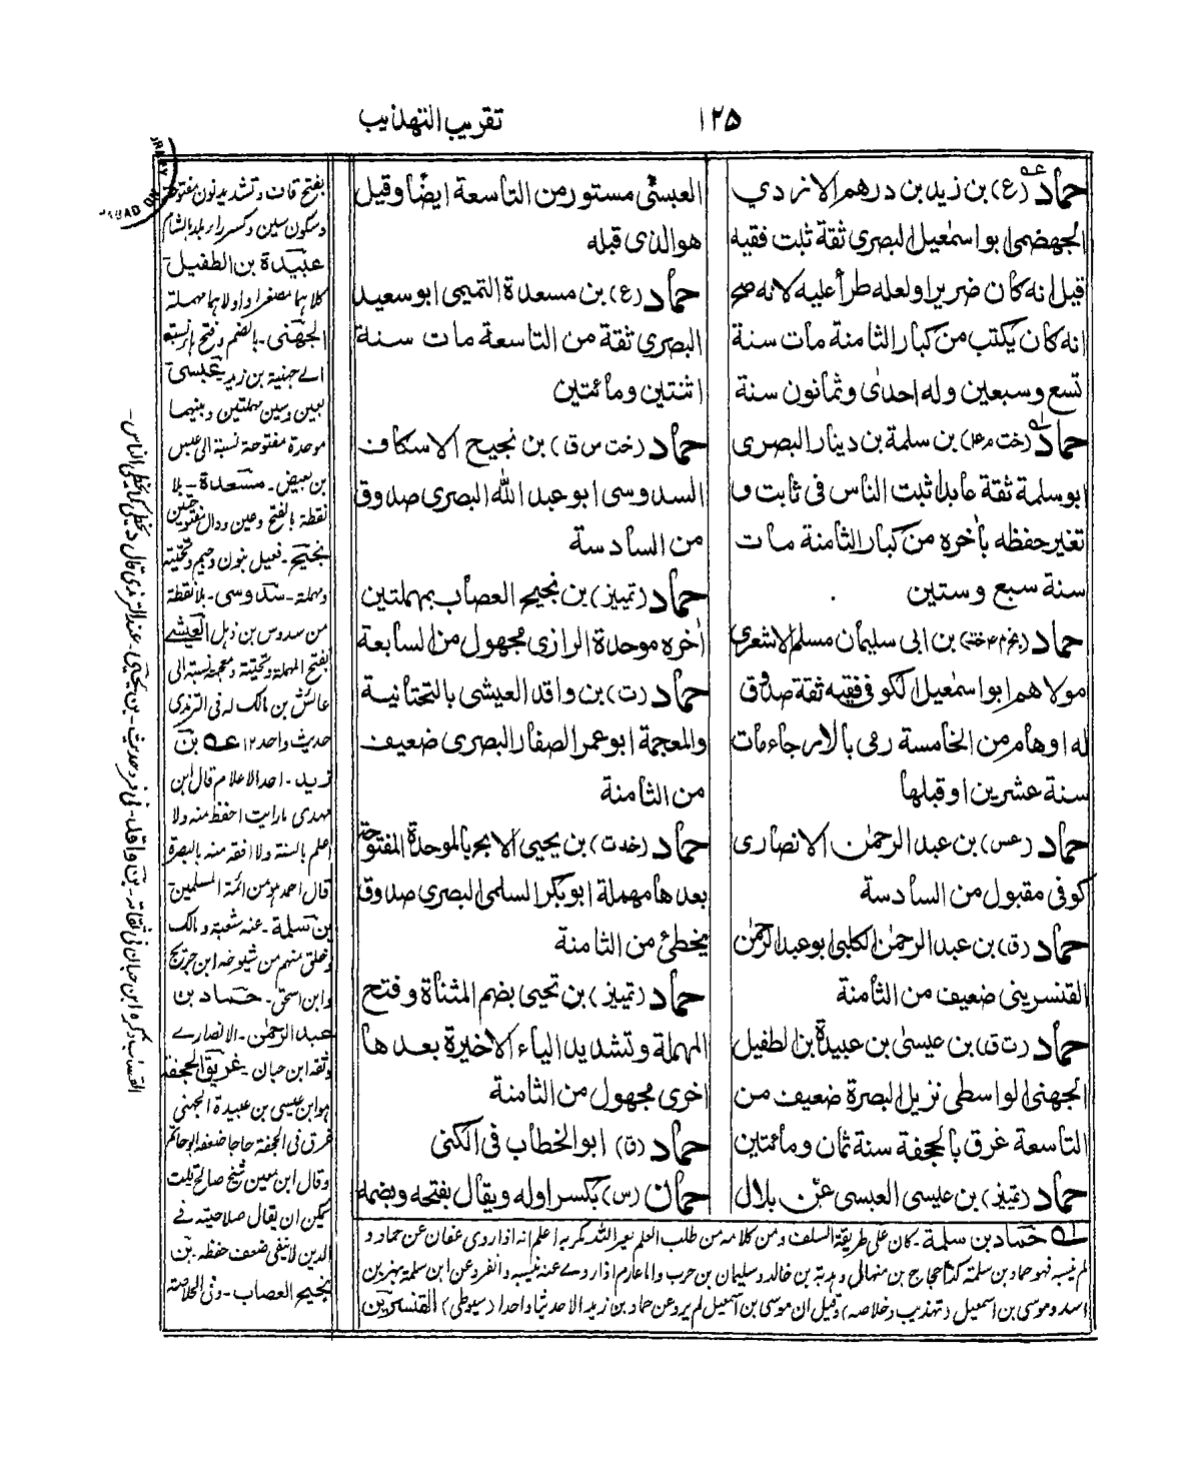 تقريب التهذيب
١٢٥
حماد (ع) بن زيد بن درهم الازدي
الجهضمي ابو اسمعيل البصري ثقة ثبت فقيه
قيل انه كان ضريرا ولعله طرأ عليه لانه صح
انه كان يكتب من كبار الثامنة مات سنة
تسع وسبعين وله احدى وثمانون سنة
حماد (خت م عه) بن سلمة بن دينار البصري
ابو سلمة ثقة عابد اثبت الناس في ثابت و
تغير حفظه بأخره من كبار الثامنة مات
سنة سبع وستين
حماد بن ابي سليمان مسلم الاشعري
مولاهم ابو اسمعيل الكوفي فقيه ثقة صدوق
له اوهام من الخامسة رمى بالارجاء مات
سنة عشرين او قبلها
حماد (عس) بن عبد الرحمن الانصاري
كوفي مقبول من السادسة
حماد (ق) بن عبد الرحمن الكلبي ابو عبد الرحمن
القنسريني ضعيف من الثامنة
حماد (ت ق) بن عيسى بن عبيدة بن الطفيل
الجهني الواسطي نزيل البصرة ضعيف من
التاسعة غرق بالجحفة سنة ثمان ومائتين
حماد (تميز) بن عيسى العبسى عن بلال
العبسى مستور من التاسعة ايضا وقيل
هو الذى قبله
حماد (ع) بن مسعدة التميمى ابو سعيد
البصري ثقة من التاسعة مات سنة
اثنتين ومائتين
حماد (خت س ق) بن نجيح الاسكاف
السدوسى ابو عبد الله البصرى صدوق
من السادسة
حماد (تميز) بن نجيح العصاب بمهملتين
اخره موحدة الرازى مجهول من السابعة
حماد (ت) بن واقد العيشى بالتحتانية
والمعجمة ابو عمر الصفار البصرى ضعيف
من الثامنة
حماد (خدت) بن يحيى الابح بالموحدة المفتوحة
بعدها مهملة ابو بكر السلمى البصرى صدوق
يخطئ من الثامنة
حماد (تميز) بن تحيى بضم المثناة وفتح
المهملة وتشديد الياء الاخيرة بعدها
اخرى مجهول من الثامنة
حماد (ق) ابو الخطاب فى الكنى
حمان (س) بكسر اوله ويقال بفتحه وبضمه
بفتح قاف وتشديد نون مفتوحة
وسكون سين وكسر راء بلد بالشام
عبيدة بن الطفيل
كلاهما مصغرا واولاهما مهملة
الجهنى - بالضم وفتح ها نسبة
الے جهنية بن زيد عبسى
بعين وسين مهملتين وبينهما
موحدة مفتوحة نسبة الى عبس
بن بغيض - مسعدة - بلا
نقطة بالفتح وعين ودال مفتوحتين
نجيح - فعيل بنون وجيم وتحتية
ومهملة - سدوسى - بلا نقطة
من سدوس بن ذهل العيشے
بفتح المهملة وتحتية ومعجمة نسبة الى
عائش بن مالك له فى الترمذى
حديث واحد ١٢ عه بن
زيد - احد الاعلام قال ابن
مهدى ما رايت احفظ منه ولا
اعلم بالسنة ولا افقه منه بالبصرة
قال احمد هو من ائمة المسلمين
بن سلمة - عنه شعبة ومالك
وخلق منهم من شيوخه ابن جريج
وابن اسحق - حماد بن
عبد الرحمن - الانصارے
وثقه ابن حبان - غرق بالجحفة
هو ابن عيسى بن عبيدة الجهنى
غرق فى الجحفة حاجا ضعفه ابو حاتم
وقال ابن معين شيخ صالح قلت
يمكن ان يقال صلاحيته فے
الدين لا ينفى ضعف حفظه - بن
نجيح العصاب - وفى الخلاصة
القصاب ذكره ابن حبان فى ثقاته - بن واقد - فى فرد حديث - بن يحيى - عند الترمذى قال يخطى كما يخطى الناس -
له حماد بن سلمة - كان على طريقة السلف ومن كلامه من طلب العلم لغير الله مكر به اعلم انه اذا روى عفان عن حماد و
لم ينسبه فهو حماد بن سلمة كذا حجاج بن منهال وهدبة بن خالد وسليمان بن حرب واما عارم اذا روے عنه نسبه وانفرد عن ابن سلمة بهز بن
اسد وموسى بن اسمعيل (تهذيب وخلاصه) وقيل ان موسى بن اسمعيل لم يرو عن حماد بن زيد الا حديثا واحدا (سيوطى) القنسرين